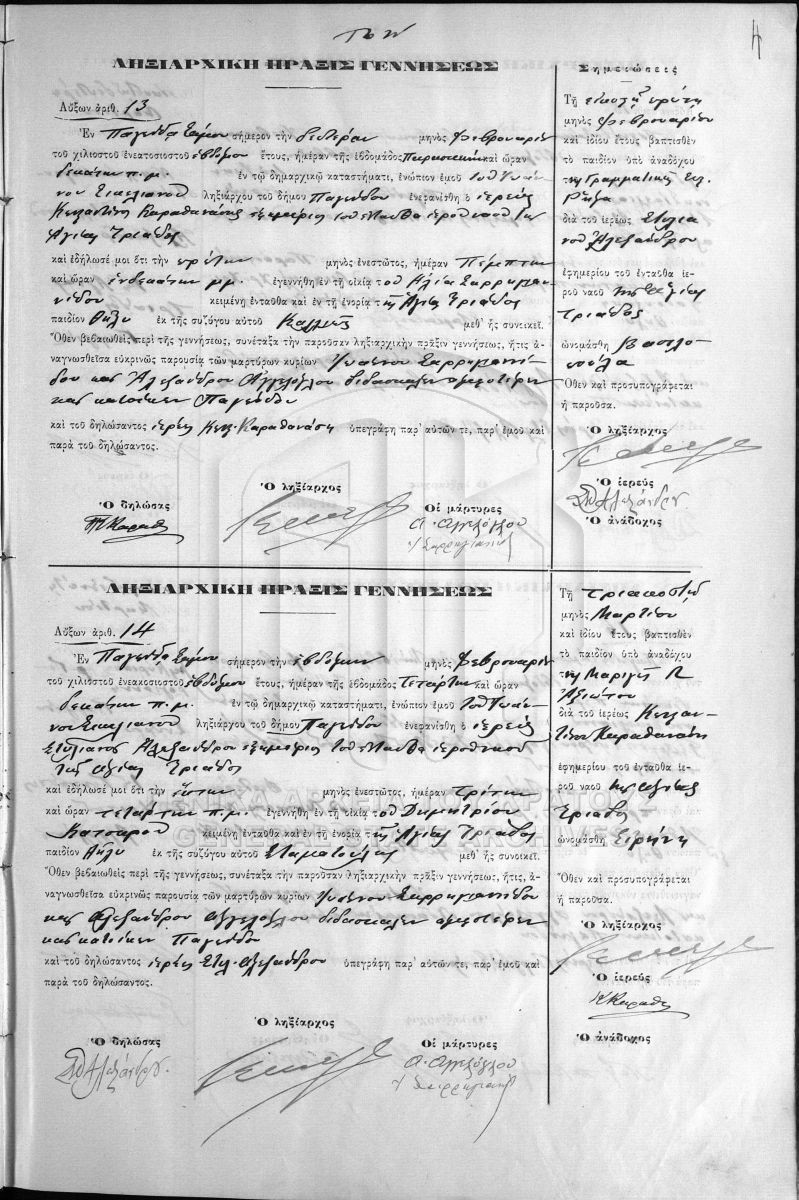 ΛΗΞΙΑΡΧΙΚΗ ΠΡΑΞΙΣ ΓΕΝΝΗΣΕΩΣ
Αὔξων ἀριθ. 13
Ἐν Παγώνδα Σάμου σήμερον τὴν δευτέραν μηνὸς Φεβρουαρίου
τοῦ χιλιοστοῦ ἐνεατοσιοστοῦ ἑβδόμου ἔτους, ἡμέραν τῆς ἑβδομάδος Παρασκευὴν καὶ ὥραν
δεκάτην π.μ. ἐν τῷ δημαρχικῷ καταστήματι, ἐνώπιον ἐμοῦ τοῦ Ἰωάν-
νου Σικελιανοῦ ληξιάρχου τοῦ δήμου Παγώνδου ἐνεφανίσθη ὁ ἱερεὺς
Κωνσταντῖνος Καραθανάσης ἐφημέριος τοῦ ἱεροῦ ναοῦ τῆς
Ἁγίας Τριάδος
καὶ ἐδήλωσέ μοι ὅτι τὴν πρώτην μηνὸς ἐνεστῶτος, ἡμέραν Πέμπτην
καὶ ὥραν ἑνδεκάτην μ.μ. ἐγεννήθη ἐν τῇ οἰκίᾳ τοῦ Ἠλία Σαρρηγιαν-
νίδου κειμένῃ ἐνταῦθα καὶ ἐν τῇ ἐνορίᾳ τῆς Ἁγίας Τριάδος
παιδίον θῆλυ ἐκ τῆς συζύγου αὐτοῦ μεθ' ἧς συνοικεῖ.
Ὅθεν βεβαιωθεὶς περὶ τῆς γεννήσεως, συνέταξα τὴν παροῦσαν ληξιαρχικὴν πρᾶξιν γεννήσεως, ἥτις ἀ-
ναγνωσθεῖσα εὐκρινῶς παρουσίᾳ τῶν μαρτύρων κυρίων Σαρρηγιαννί-
δου καὶ Ἀλεξάνδρου Ἀγγελόγλου διδασκάλων ἀμφοτέρων
καὶ κατοίκων Παγώνδου
καὶ τοῦ δηλώσαντος ἱερέως Κων. Καραθανάση ὑπεγράφη παρ' αὐτῶν τε, παρ' ἐμοῦ καὶ
παρὰ τοῦ δηλώσαντος.
Ὁ δηλώσας
Ὁ ληξίαρχος
Οἱ μάρτυρες
Α. Αγγελόγλου
Σαρρηγιαννίδης
Σημειώσεις
Τῇ εἰκοστῇ πρώτῃ
μηνὸς Φεβρουαρίου
καὶ ἰδίου ἔτους βαπτισθὲν
τὸ παιδίον ὑπὸ ἀναδόχου
τῆς Γραμματικῆς
διὰ τοῦ ἱερέως Στυλια-
νοῦ Ἀλεξάνδρου
ἐφημερίου τοῦ ἐνταῦθα ἱε-
ροῦ ναοῦ τῆς Ἁγίας
Τριάδος
ὠνομάσθη Βασιλο-
πούλα
Ὅθεν καὶ προσυπογράφεται
ἡ παροῦσα.
Ὁ ληξίαρχος
Ὁ ἱερεὺς
Στυλ Αλεξάνδρου
Ὁ ἀνάδοχος
ΛΗΞΙΑΡΧΙΚΗ ΠΡΑΞΙΣ ΓΕΝΝΗΣΕΩΣ
Αὔξων ἀριθ. 14
Ἐν Παγώνδα Σάμου σήμερον τὴν ἑβδόμην μηνὸς Φεβρουαρίου
τοῦ χιλιοστοῦ ἐνεακοσιοστοῦ ἑβδόμου ἔτους, ἡμέραν τῆς ἑβδομάδος Τετάρτην καὶ ὥραν
δεκάτην π.μ. ἐν τῷ δημαρχικῷ καταστήματι, ἐνώπιον ἐμοῦ τοῦ Ἰωάν-
νου Σικελιανοῦ ληξιάρχου τοῦ δήμου Παγώνδου ἐνεφανίσθη ὁ ἱερεὺς
Στυλιανὸς Ἀλεξάνδρου ἐφημέριος τοῦ ἱεροῦ ναοῦ
τῆς Ἁγίας Τριάδος
καὶ ἐδήλωσέ μοι ὅτι τὴν ἕκτην μηνὸς ἐνεστῶτος, ἡμέραν Τρίτην
καὶ ὥραν τετάρτην π.μ. ἐγεννήθη ἐν τῇ οἰκίᾳ τοῦ Δημητρίου
Κατσαροῦ κειμένῃ ἐνταῦθα καὶ ἐν τῇ ἐνορίᾳ τῆς Ἁγίας Τριάδος
παιδίον θῆλυ ἐκ τῆς συζύγου αὐτοῦ Σταματούλας μεθ' ἧς συνοικεῖ.
Ὅθεν βεβαιωθεὶς περὶ τῆς γεννήσεως, συνέταξα τὴν παροῦσαν ληξιαρχικὴν πρᾶξιν γεννήσεως, ἥτις ἀ-
ναγνωσθεῖσα εὐκρινῶς παρουσίᾳ τῶν μαρτύρων κυρίων Σαρρηγιαννίδου
καὶ Ἀλεξάνδρου Ἀγγελόγλου διδασκάλων ἀμφοτέρων
καὶ κατοίκων Παγώνδου
καὶ τοῦ δηλώσαντος ἱερέως Στυλ. Ἀλεξάνδρου ὑπεγράφη παρ' αὐτῶν τε, παρ' ἐμοῦ καὶ
παρὰ τοῦ δηλώσαντος.
Ὁ δηλώσας
Στυλ Αλεξάνδρου
Ὁ ληξίαρχος
Οἱ μάρτυρες
Α. Αγγελόγλου
Σαρρηγιαννίδης
Τῇ τριακοστῇ
μηνὸς Μαρτίου
καὶ ἰδίου ἔτους βαπτισθὲν
τὸ παιδίον ὑπὸ ἀναδόχου
τῆς Μαριγῶς
Ἀξιώτου
διὰ τοῦ ἱερέως Κωνσταν-
τίνου Καραθανάση
ἐφημερίου τοῦ ἐνταῦθα ἱε-
ροῦ ναοῦ τῆς Ἁγίας
Τριάδος
ὠνομάσθη Εἰρήνη
Ὅθεν καὶ προσυπογράφεται
ἡ παροῦσα.
Ὁ ληξίαρχος
Ὁ ἱερεὺς
Ὁ ἀνάδοχος